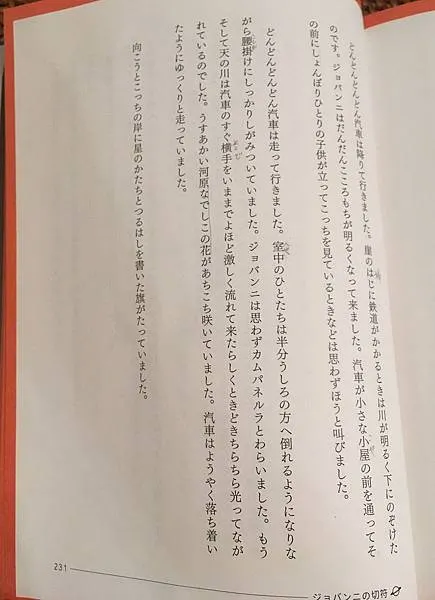 どんどんどんどん汽車は降りて行きました。崖のはじに鉄道がかかるときは川が明るく下にのぞけた
のです。ジョバンニはだんだんこころもちが明るくなって来ました。汽車が小さな小屋の前を通ってそ
の前にしょんぼりひとりの子供が立ってこっちを見ているときなどは思わずほうと叫びました。
どんどんどんどん汽車は走って行きました。室中のひとたちは半分うしろの方へ倒れるようになりな
がら腰掛けにしっかりしがみついていました。ジョバンニは思わずカムパネルラとわらいました。もう
そして天の川は汽車のすぐ横手をいままでよほど激しく流れて来たらしくときどきちらちら光ってなが
れているのでした。うすあかい河原なでしこの花があちこち咲いていました。汽車はようやく落ち着い
たようにゆっくりと走っていました。
向こうとこっちの岸に星のかたちとつるはしを書いた旗がたっていました。
231
ジョバンニの切符